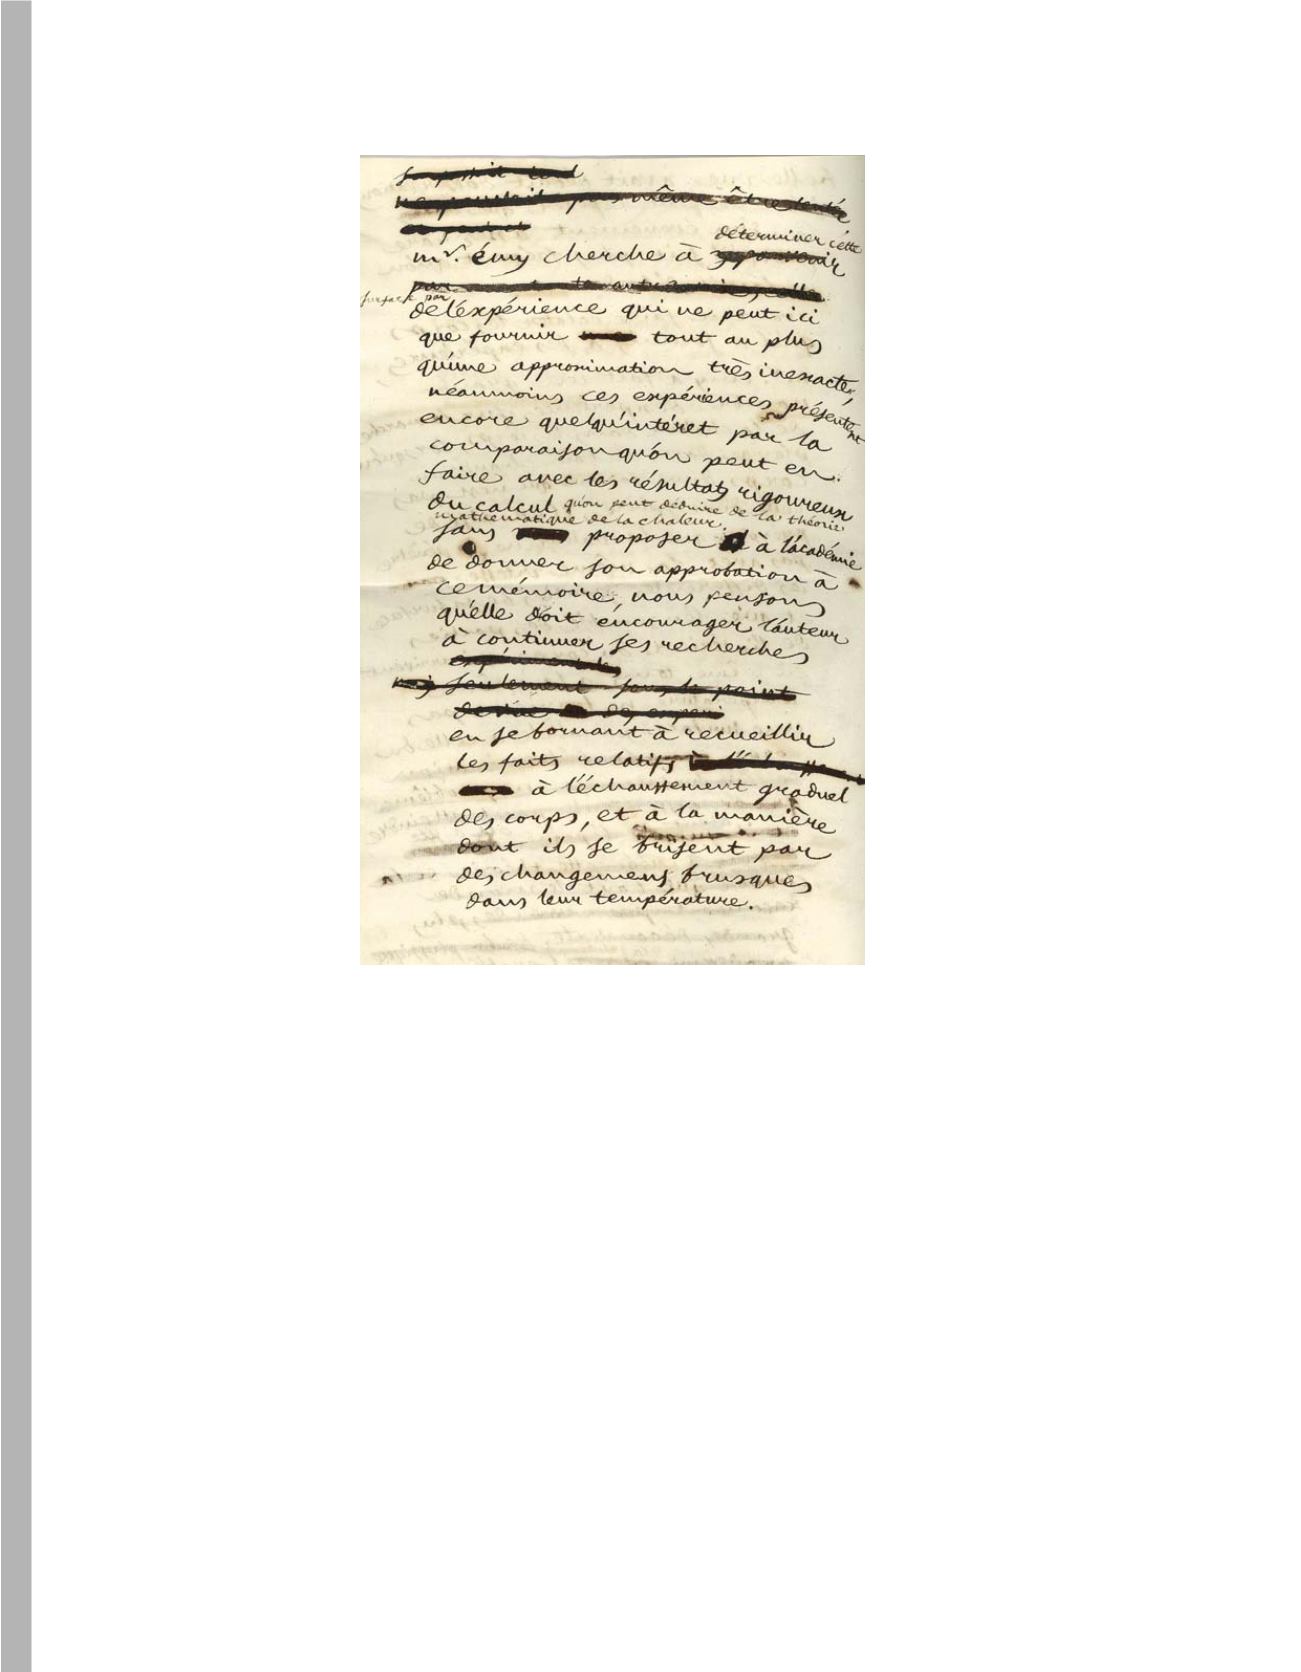 pas même être tentée
déterminer cette
mr. émy cherche à
surface par
de l'expérience qui ne peut ici
que fournir tout au plus
qu'une approximation très inexacte,
néanmoins ces expériences présentent
encore quelqu'intéret par la
comparaison qu'on peut en
faire avec les résultats rigoureux
du calcul qu'on peut déduire de la théorie
mathématique de la chaleur.
sans proposer à l'académie
de donner son approbation à
ce mémoire, nous pensons
qu'elle doit encourager l'auteur
à continuer ses recherches
expérimentales
mais seulement sous le point
de vue des experi
en se bornant à recueillir
les faits relatifs
à l'échauffement graduel
des corps, et à la manière
dont ils se brisent par
des changemens brusques
dans leur température.